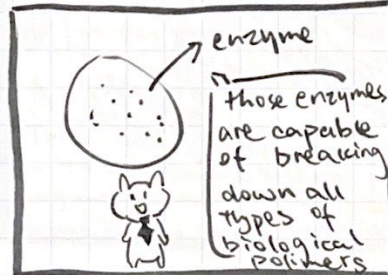 enzyme
those enzymes
are capable
of breaking
down all
types of
biological
polimers